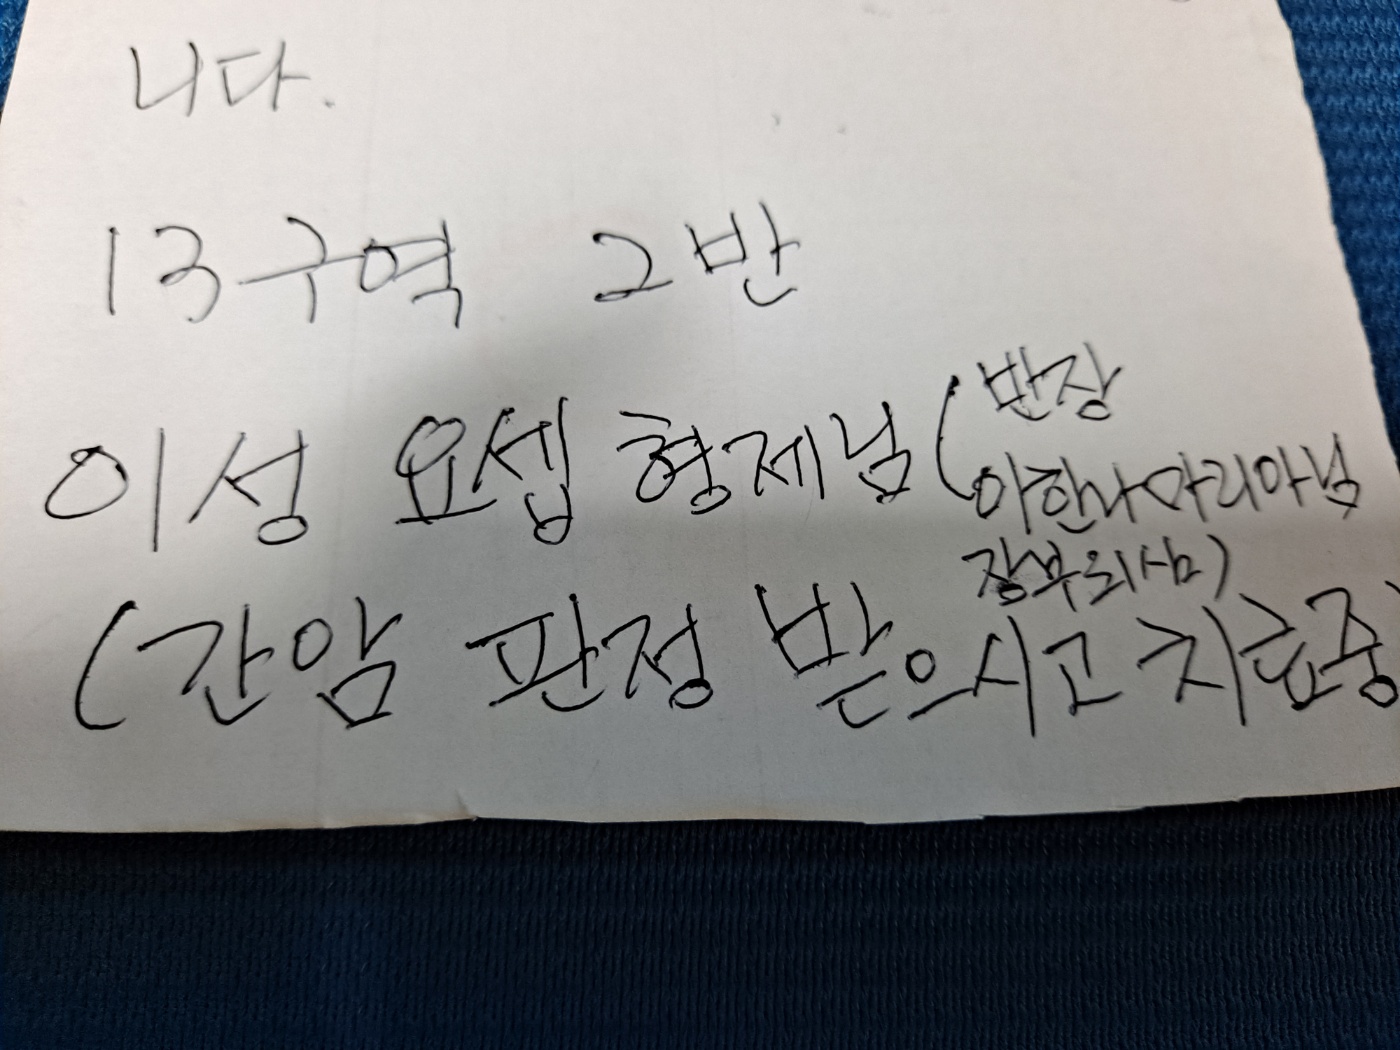 니다.
13구역 2반
이성 요셉 형제님 (반장
이한나마리아님
장부되심)
(간암 판정 받으시고 치료중